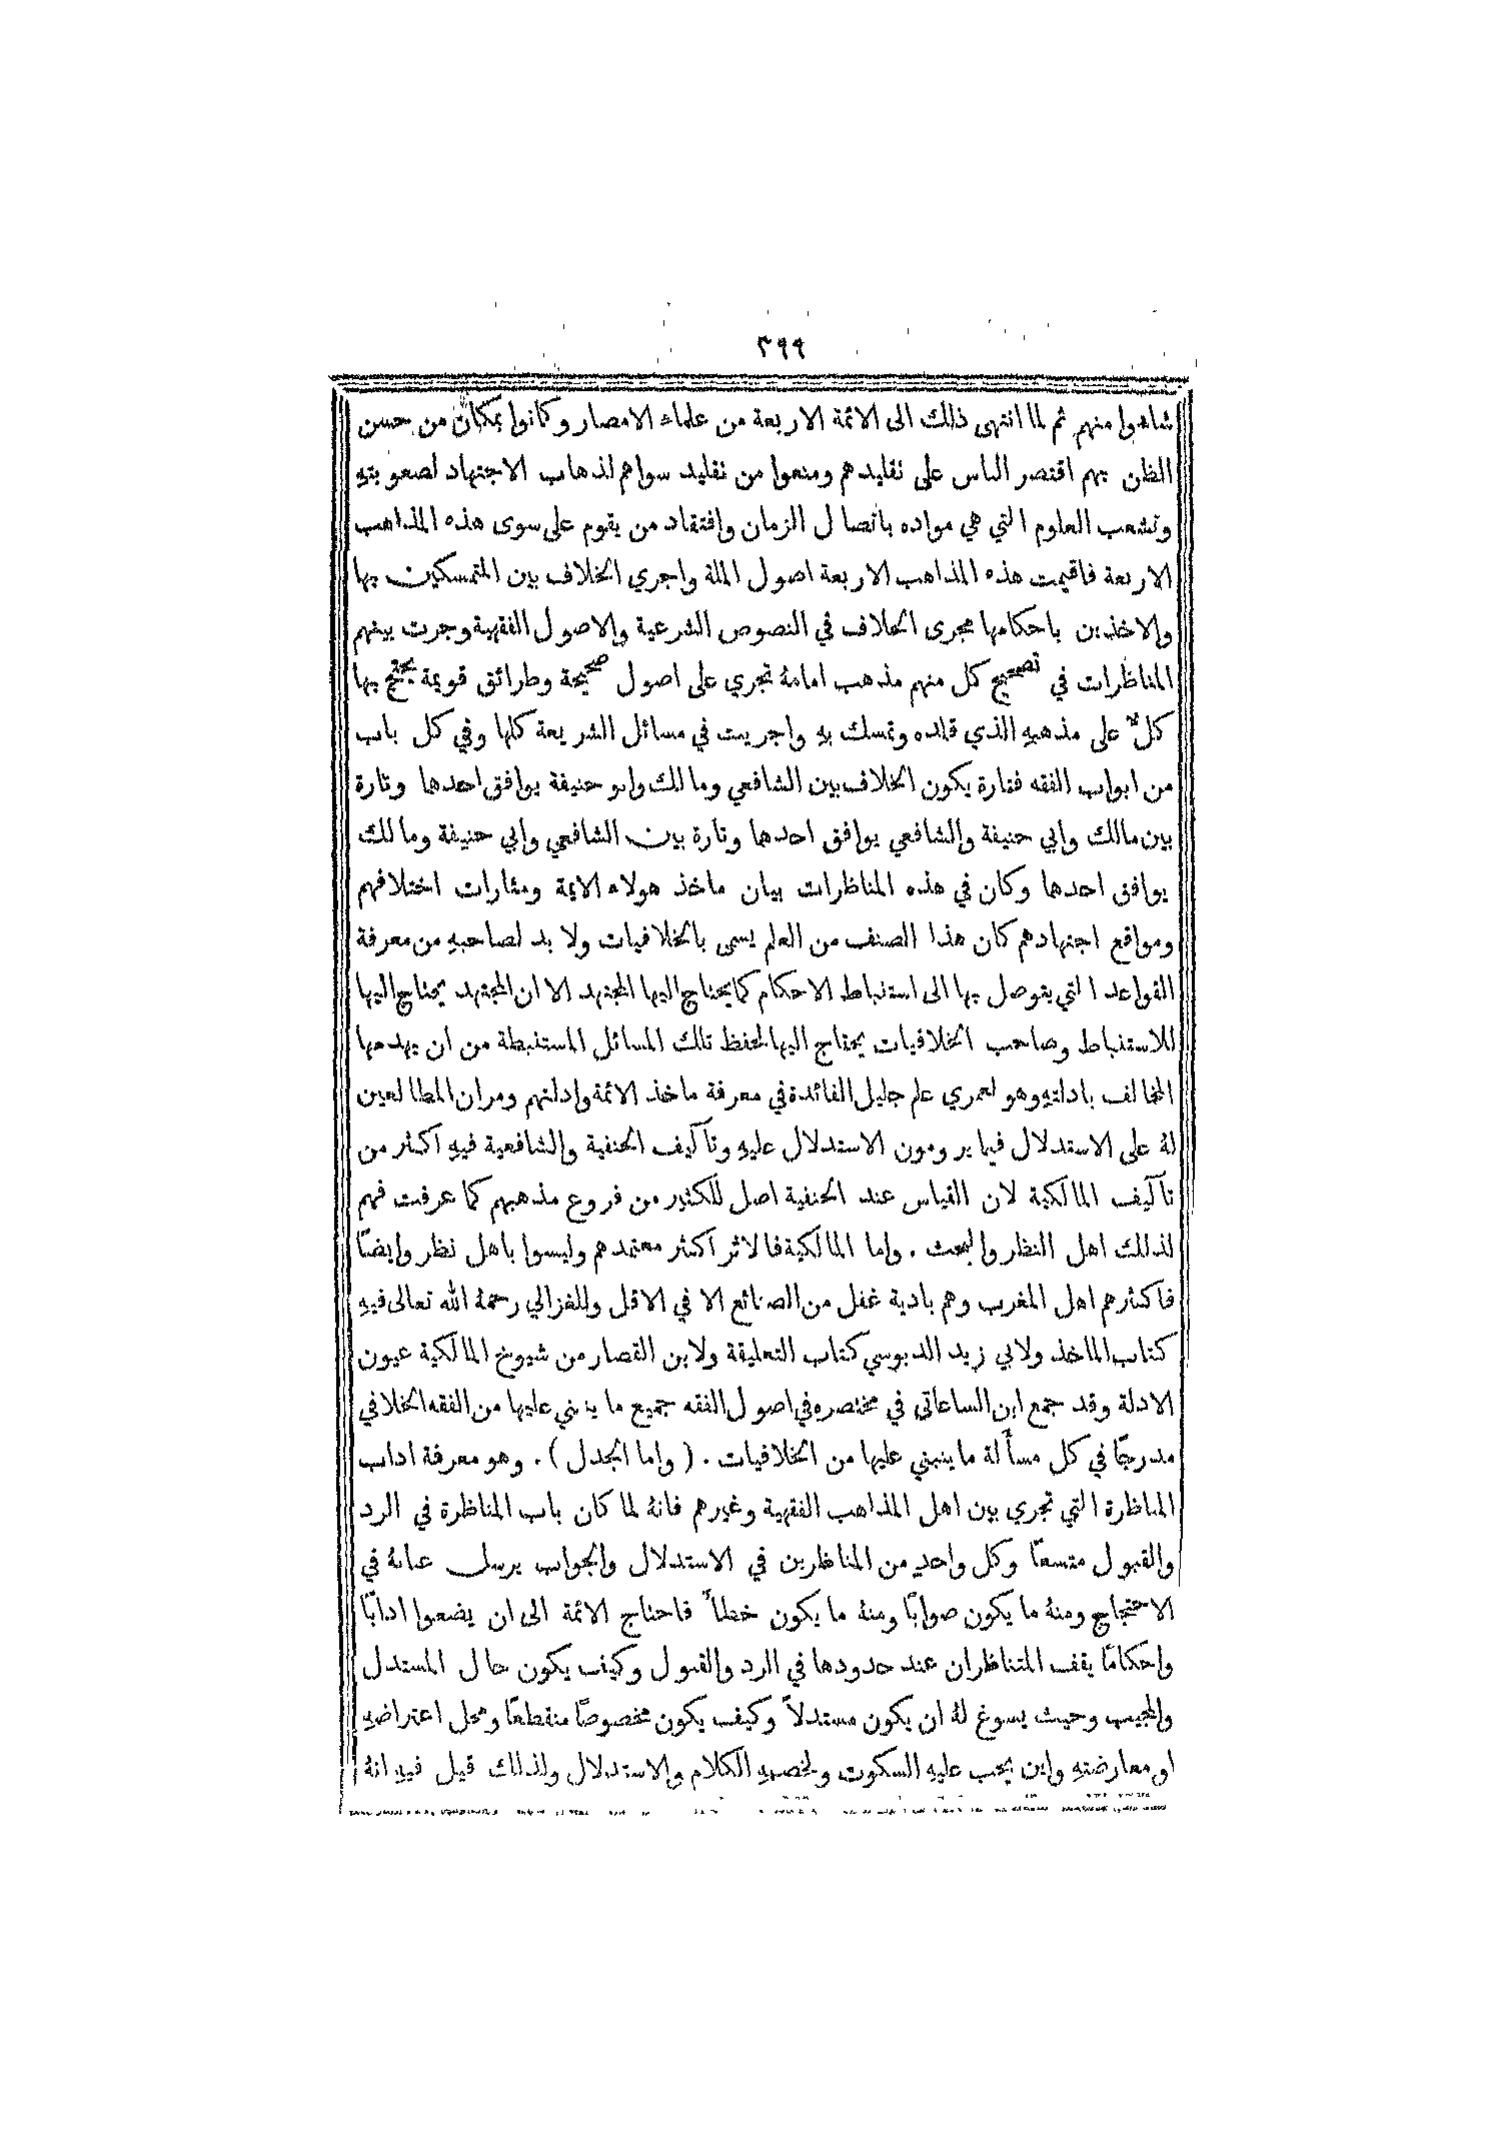 ٣٩٩
شاءوا منهم ثم لما انتهى ذلك الى الائمة الاربعة من علماء الامصار وكانوا بمكان من حسن
الظن بهم اقتصر الناس على تقليدهم ومنعوا من تقليد سواهم لذهاب الاجتهاد لصعوبته
وتشعب العلوم التي هي مواده باتصال الزمان وافتقاد من يقوم على سوى هذه المذاهب
الاربعة فاقيمت هذه المذاهب الاربعة اصول الملة واجري الخلاف بين المتمسكين بها
والاخذين باحكامها مجرى الخلاف في النصوص الشرعية والاصول الفقهية وجرت بينهم
المناظرات في تصحيح كل منهم مذهب امامهُ تجري على اصول صحيحة وطرائق قويمة يحتج بها
كلٌّ على مذهبهِ الذي قلده وتمسك بهِ واجريت في مسائل الشريعة كلها وفي كل باب
من ابواب الفقه فتارة يكون الخلاف بين الشافعي ومالك وابو حنيفة يوافق احدهما وتارة
بين مالك وابي حنيفة والشافعي يوافق احدهما وتارة بين الشافعي وابي حنيفة ومالك
يوافق احدهما وكان في هذه المناظرات بيان ماخذ هولاء الايمة ومثارات اختلافهم
ومواقع اجتهادهم كان هذا الصنف من العلم يسمى بالخلافيات ولا بد لصاحبهِ من معرفة
القواعد التي يتوصل بها الى استنباط الاحكام كما يحتاج اليها المجتهد الا ان المجتهد يحتاج اليها
للاستنباط وصاحب الخلافيات يحتاج اليها لحفظ تلك المسائل المستنبطة من ان يهدمها
المخالف بادلتهِ وهو لعمري علم جليل الفائدة في معرفة ماخذ الائمة وادلتهم ومران المطالعين
لهُ على الاستدلال فيما يرومون الاستدلال عليهِ وتآليف الحنفية والشافعية فيهِ اكثر من
تآليف المالكية لان القياس عند الحنفية اصل للكثير من فروع مذهبهم كما عرفت فهم
لذلك اهل النظر والبحث . واما المالكية فالاثر اكثر معتمدهم وليسوا باهل نظر وايضًا
فاكثرهم اهل المغرب وهم بادية غفل من الصنائع الا في الاقل وللغزالي رحمهُ الله تعالى فيهِ
كتاب الماخذ ولابي زيد الدبوسي كتاب التعليقة ولابن القصار من شيوخ المالكية عيون
الادلة وقد جمع ابن الساعاتي في مختصرهِ في اصول الفقه جميع ما ينبني عليها من الفقه الخلافي
مدرجًا في كل مسأَلة ما ينبني عليها من الخلافيات . ( واما الجدل ) . وهو معرفة اداب
المناظرة التي تجري بين اهل المذاهب الفقهية وغيرهم فانهُ لما كان باب المناظرة في الرد
والقبول متسعًا وكل واحدٍ من المناظرين في الاستدلال والجواب يرسل عنانهُ في
الاحتجاج ومنهُ ما يكون صوابًا ومنهُ ما يكون خطاءً فاحتاج الائمة الى ان يضعوا ادابًا
واحكامًا يقف المتناظران عند حدودها في الرد والقبول وكيف يكون حال المستدل
والمجيب وحيث يسوغ لهُ ان يكون مستدلاً وكيف يكون مخصوصًا منقطعًا ومحل اعتراضهِ
او معارضتهِ واين يجب عليهِ السكوت ولخصمهِ الكلام والاستدلال ولذلك قيل فيهِ انهُ